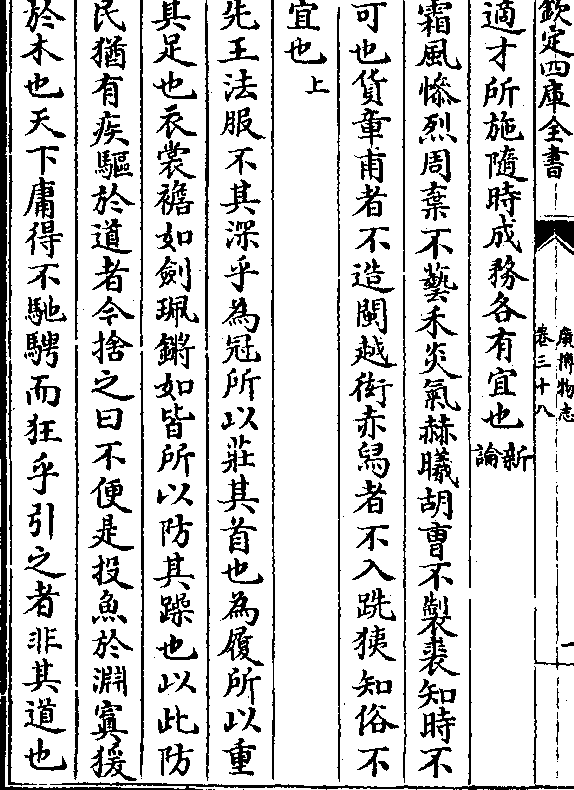 欽定四庫全書
廣博物志
卷三十八
一
適才所施隨時成務各有宜也新論
霜風慘烈周棄不藝禾炎氣赫曦胡曹不製裘知時不
可也貨章甫者不造閩越衒赤舄者不入跣狹知俗不
宜也上
先王法服不其深乎為冠所以莊其首也為履所以重
其足也衣裳襜如劍珮鏘如皆所以防其躁也以此防
民猶有疾驅於道者今捨之曰不便是投魚於淵寘猨
於木也天下庸得不馳騁而狂乎引之者非其道也